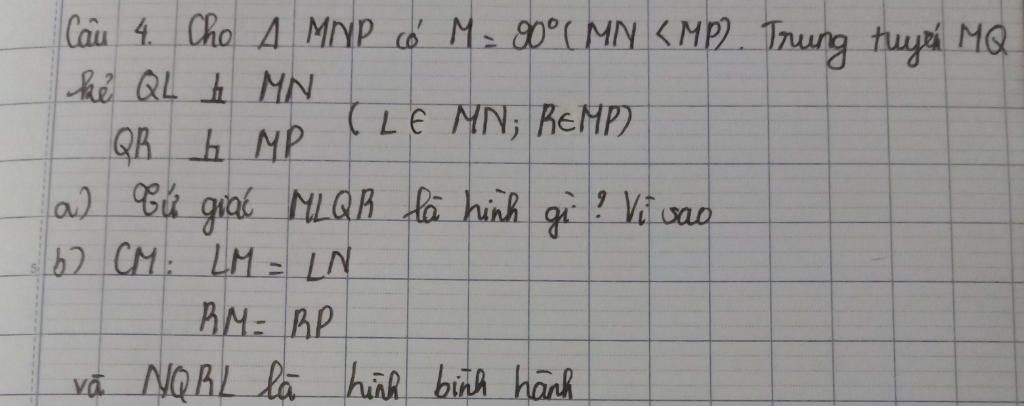 Câu 4. Cho Δ MNP có M = 90° (MN < MP). Trung tuyến MQ
kẻ QL ⊥ MN
(L ∈ MN; R ∈ MP)
QR ⊥ MP
a) Tứ giác MLQR là hình gì? Vì sao
b) CM: LM = LN
RM = RP
và NQRL là hình bình hành